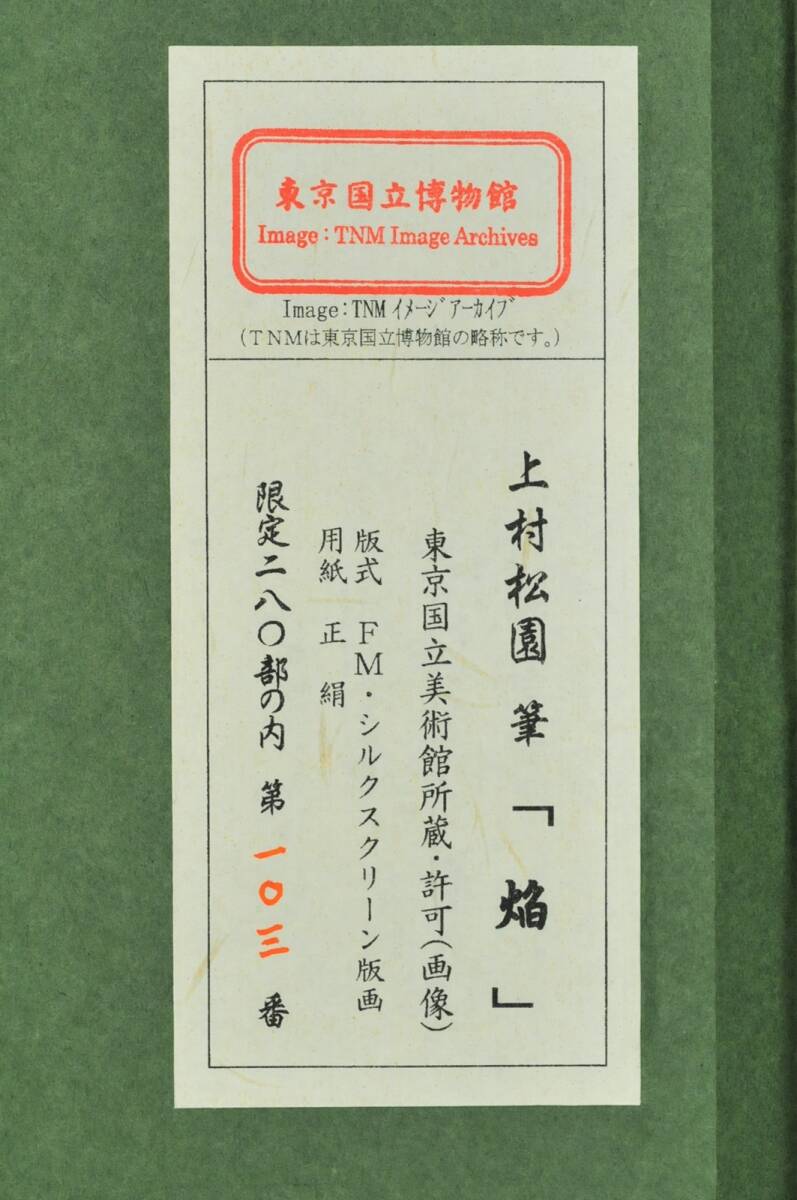 東京国立博物館
Image : TNM Image Archives
Image:TNM イメージアーカイブ
(TNMは東京国立博物館の略称です。)
上村松園 筆 「焔」
東京国立美術館所蔵・許可(画像)
版式 FM・シルクスクリーン版画
用紙 正絹
限定二八〇部の内 第一〇三番